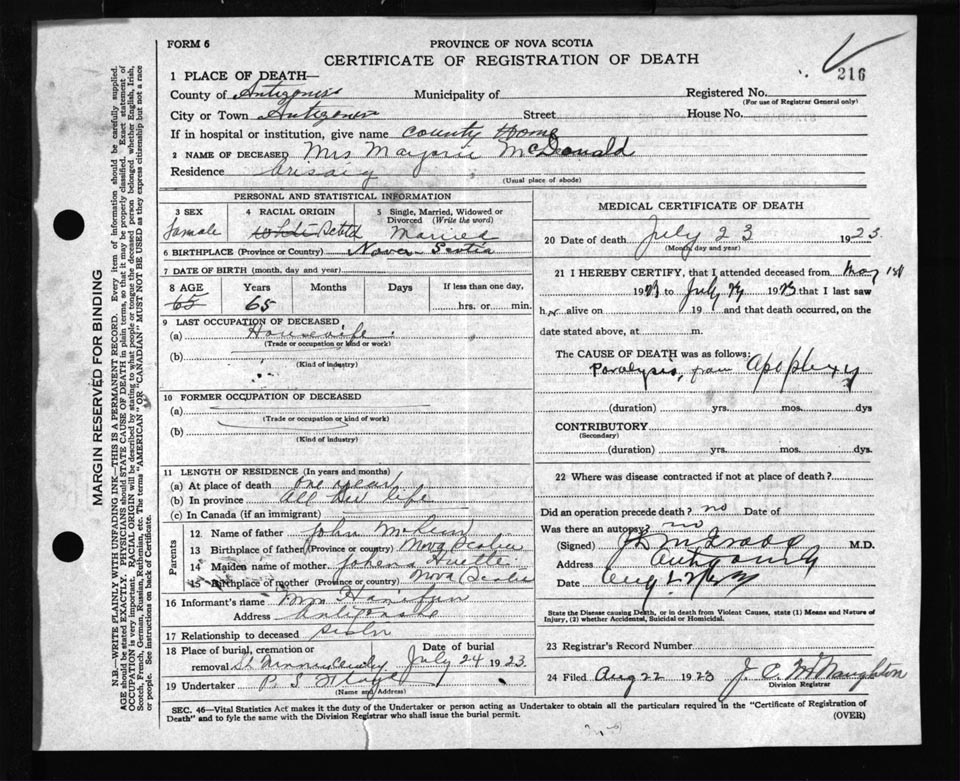 FORM 6
PROVINCE OF NOVA SCOTIA
CERTIFICATE OF REGISTRATION OF DEATH
216
1 PLACE OF DEATH—
County of Antigonish Municipality of Registered No.
(For use of Registrar General only)
City or Town Antigonish Street House No.
If in hospital or institution, give name County Home
2 NAME OF DECEASED Mrs Marjorie McDonald
Residence Arisaig
(Usual place of abode)
PERSONAL AND STATISTICAL INFORMATION
3 SEX 4 RACIAL ORIGIN 5 Single, Married, Widowed or Divorced (Write the word)
Female White Scotch Married
6 BIRTHPLACE (Province or Country) Nova Scotia
7 DATE OF BIRTH (month, day and year)
8 AGE Years Months Days If less than one day,
65 65 hrs. or min.
9 LAST OCCUPATION OF DECEASED
(a) Housewife
(Trade or occupation or kind or work)
(b)
(Kind of industry)
10 FORMER OCCUPATION OF DECEASED
(a)
(Trade or occupation or kind of work)
(b)
(Kind of industry)
11 LENGTH OF RESIDENCE (In years and months)
(a) At place of death one year
(b) In province all her life
(c) In Canada (if an immigrant)
Parents
12 Name of father John
13 Birthplace of father (Province or country) Nova Scotia
14 Maiden name of mother Johena
15 Birthplace of mother (Province or country) Nova Scotia
16 Informant's name Mrs
Address Antigonish
17 Relationship to deceased sister
18 Place of burial, cremation or removal St Date of burial July 24 1923.
19 Undertaker P. S. Floyd
(Name and Address)
MEDICAL CERTIFICATE OF DEATH
20 Date of death July 23 1923.
(Month, day and year)
21 I HEREBY CERTIFY, that I attended deceased from May 1st
1923 to July 1923 that I last saw
her alive on 19 and that death occurred, on the
date stated above, at m.
The CAUSE OF DEATH was as follows:
Paralysis, from Apoplexy
(duration) yrs. mos. dys
CONTRIBUTORY
(Secondary)
(duration) yrs. mos. dys.
22 Where was disease contracted if not at place of death?
Did an operation precede death? no Date of
Was there an autopsy? no
(Signed) M.D.
Address Antigonish
Date Aug
State the Disease causing Death, or in death from Violent Causes, state (1) Means and Nature of
Injury, (2) whether Accidental, Suicidal or Homicidal.
23 Registrar's Record Number
24 Filed Aug 22 1923 J. C. McNaughton
Division Registrar
SEC. 46—Vital Statistics Act makes it the duty of the Undertaker or person acting as Undertaker to obtain all the particulars required in the "Certificate of Registration of
Death" and to fyle the same with the Division Registrar who shall issue the burial permit.
(OVER)
MARGIN RESERVED FOR BINDING
N.B.—WRITE PLAINLY WITH UNFADING INK—THIS IS A PERMANENT RECORD. Every item of information should be carefully supplied.
AGE should be stated EXACTLY. PHYSICIANS should STATE CAUSE OF DEATH in plain terms, so that it may be properly classified. Exact statement of
OCCUPATION is very important. RACIAL ORIGIN will be described by stating to what people or tongue the deceased person belonged whether English, Irish,
Scotch, French, German, Russian, Ruthenian, etc. The terms "AMERICAN" OR "CANADIAN" MUST NOT BE USED as they express citizenship but not a race
or people. See instructions on back of Certificate.